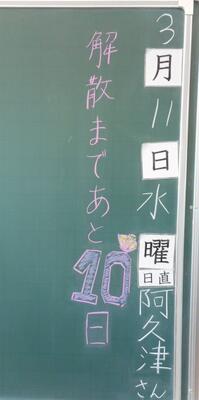 3月11日水曜
日直
阿久津さん
解散まであと10日